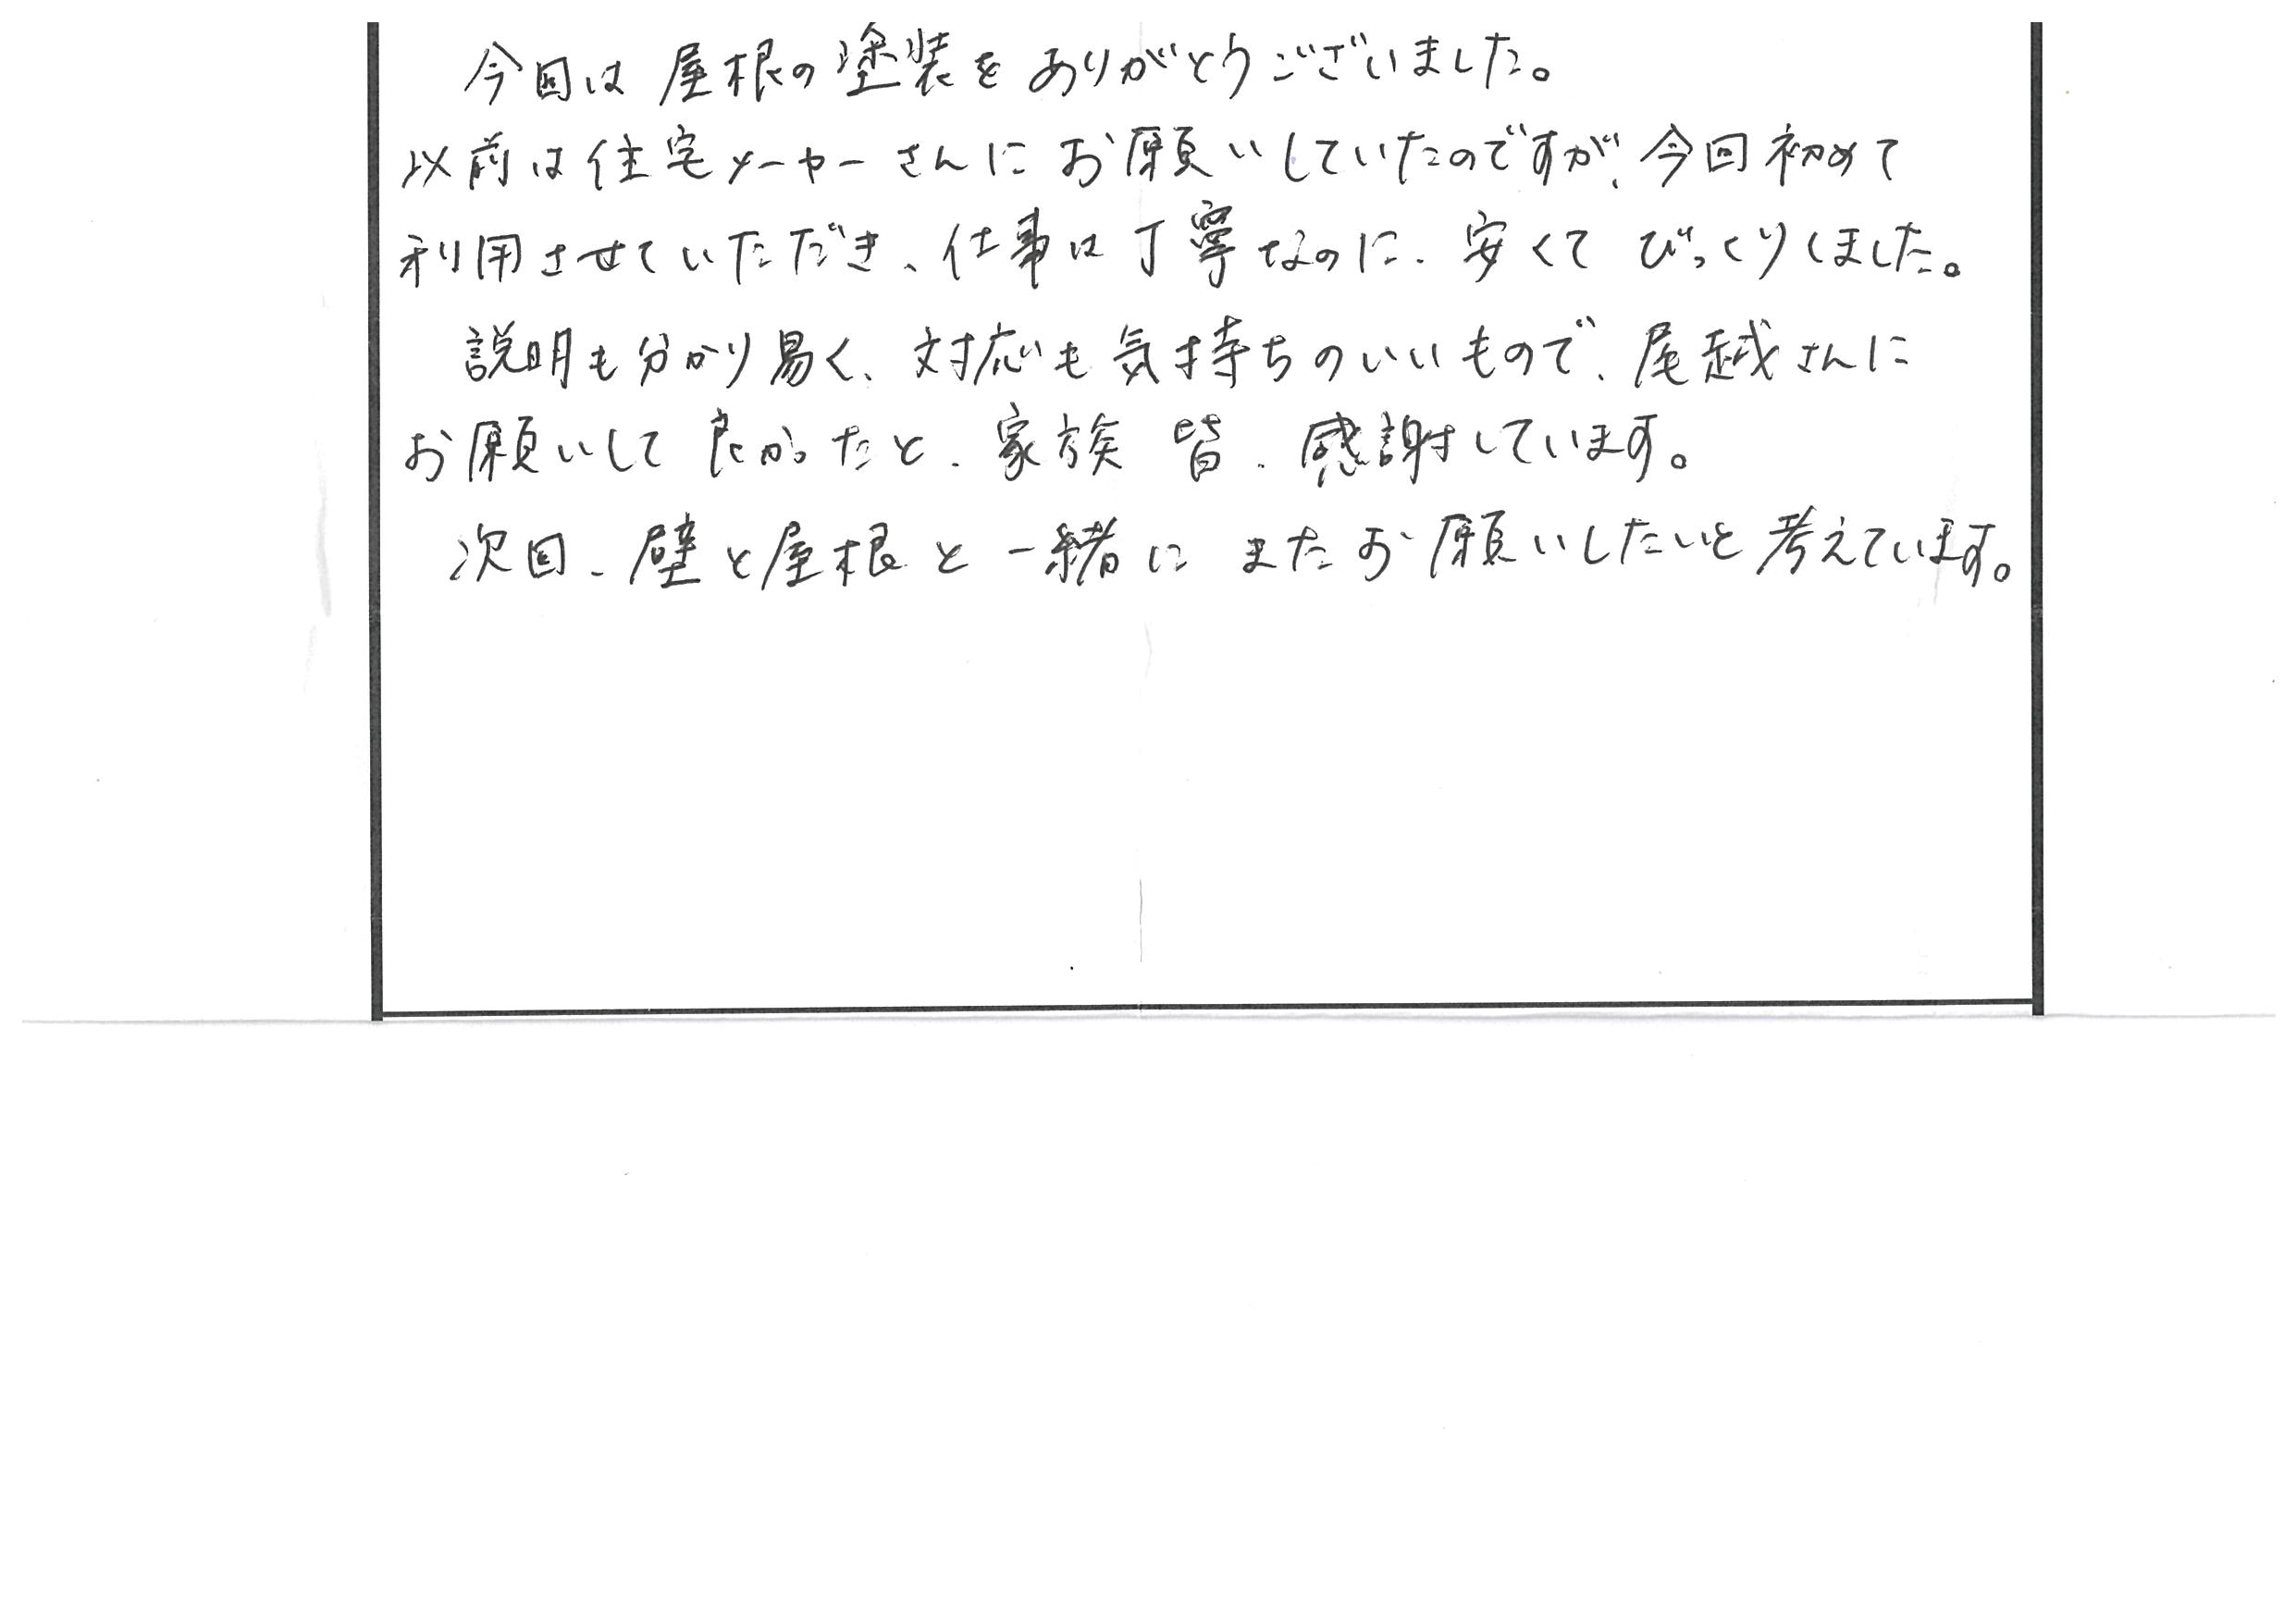 今回は屋根の塗装をありがとうございました。
以前は住宅メーカーさんにお願いしていたのですが、今回初めて
利用させていただき、仕事は丁寧なのに、安くてびっくりしました。
説明も分かり易く、対応も気持ちのいいもので、尾越さんに
お願いして良かったと、家族皆、感謝しています。
次回、壁と屋根と一緒にまたお願いしたいと考えています。